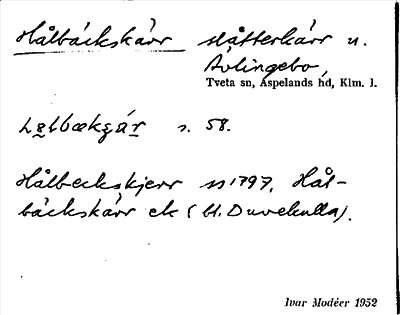 Hålbäckskärr slåtterkärr u.
Åvlingebo,
Tveta sn, Aspelands hd, Klm. l.
s. 58.
Hålbeckskjerr ss 1797, Hål-
bäckskärr ek (bl. Duvekulla).
Ivar Modéer 1952